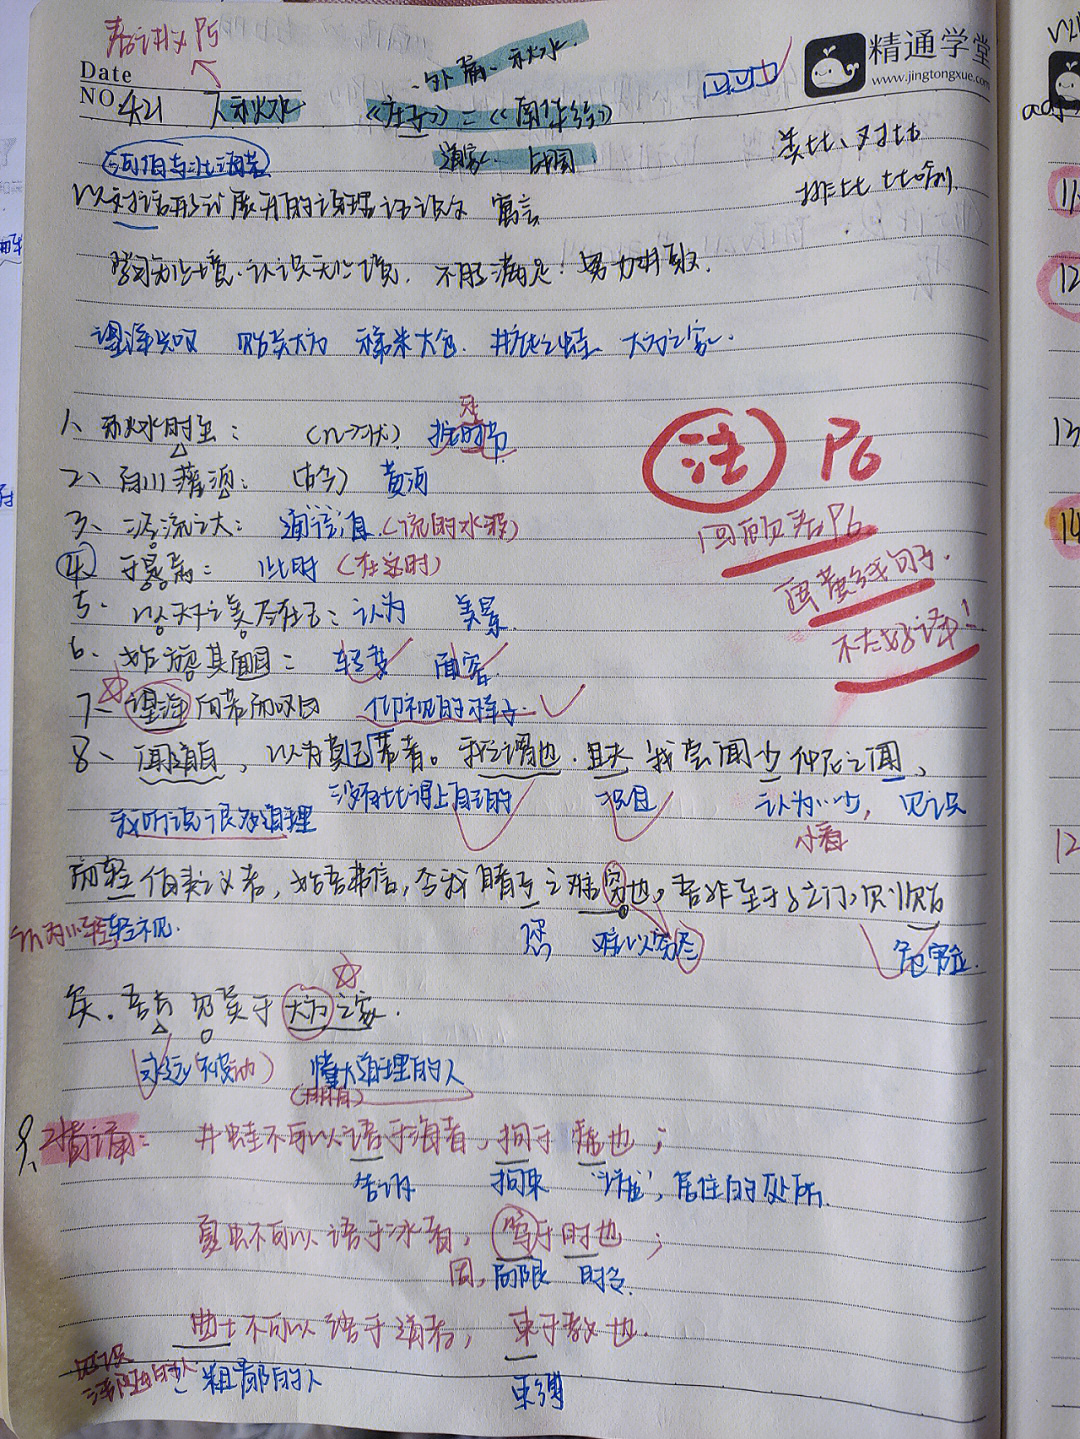 看讲义P5
外篇·秋水
精通学堂
www.jingtongxue.com
Date
NO. 4.21 秋水 《庄子》=《南华经》
道家 战国 类比、对比
河伯与北海若 排比 比喻
以对话形式展开的说理论说文 寓言
学习无止境·认识无止境,不能满足!努力进取.
望洋兴叹 贻笑大方 稊米大仓. 井底之蛙 大方之家.
1、秋水时至: (n→状) 按时节
2、百川灌河: (古今) 黄河
3、泾流之大: 通"径"直(流的水波)
4、于是焉: 此时(在这时)
5. 以天下之美为尽在己:认为 美景.
6、始旋其面目: 转变 面容.
7、望洋向若而叹曰 仰视的样子.
8、闻道百,以为莫己若者。我之谓也.且夫 我尝闻少仲尼之闻,
我听说很多道理 没有比得上自己的 况且 认为…少, 见识
小看
而轻伯夷之义者,始吾弗信,今我睹子之难穷也,吾非至于子之门,则殆
认为…轻 轻视. 您 难以穷尽 危险.
矣.吾长见笑于大方之家.
永远(被动) 懂大道理的人
井蛙不可以语于海者,拘于虚也;
告诉 拘束 "墟",居住的处所.
夏虫不可以语于冰者,笃于时也;
固,局限 时令
曲士不可以语于道者,束于教也.
见识
浅陋的人 粗鄙的人 束缚
注 P6
回顾看P6
画黄线句子.
不太好译!
11
12
13
14
12